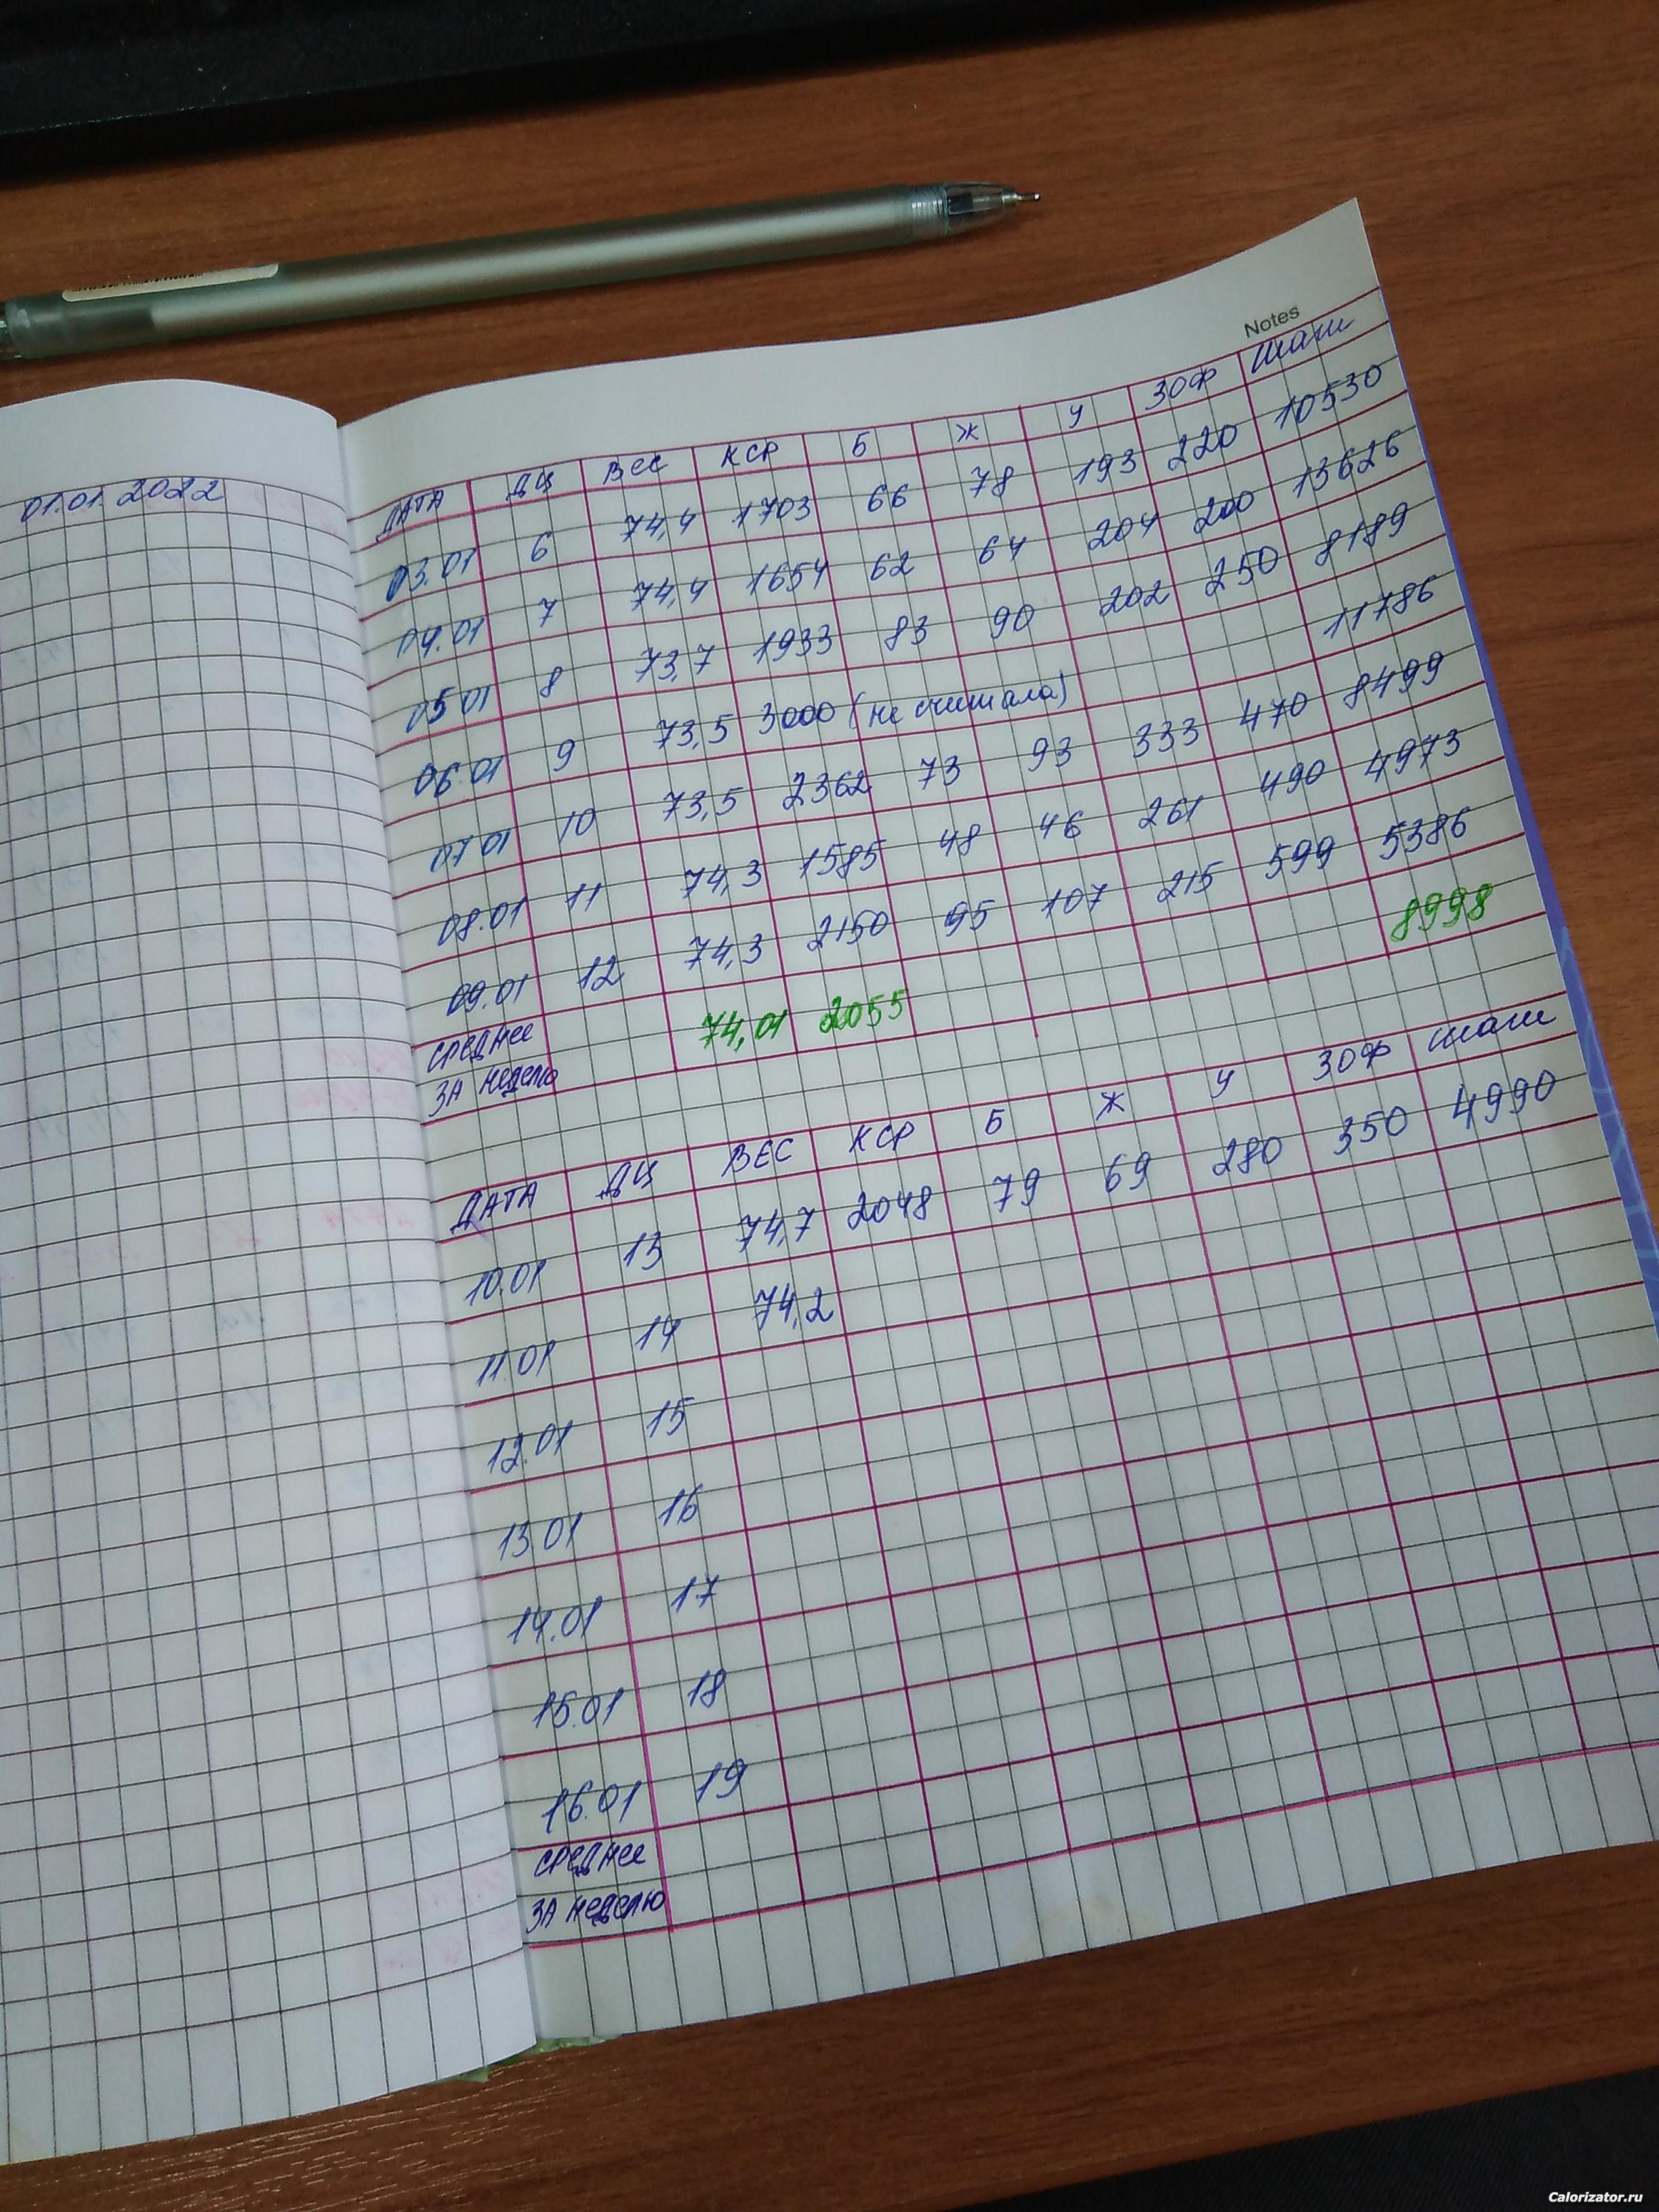 01.01.2022
Notes
ДАТА ДЦ ВЕС КСР Б Ж У ЗОФ шаги
03.01 6 74,4 1703 66 78 193 220 10530
04.01 7 74,4 1654 62 64 204 200 13626
05.01 8 73,7 1933 83 90 202 250 8189
06.01 9 73,5 3000 (не считала) 11786
07.01 10 73,5 2362 73 93 333 470 8499
08.01 11 74,3 1585 48 46 261 490 4973
09.01 12 74,3 2150 95 107 215 599 5386
СРЕДНЕЕ 74,01 2055 8998
ЗА НЕДЕЛЮ
ДАТА ДЦ ВЕС КСР Б Ж У ЗОФ шаги
10.01 13 74,7 2048 79 69 280 350 4990
11.01 14 74,2
12.01 15
13.01 16
14.01 17
15.01 18
16.01 19
СРЕДНЕЕ
ЗА НЕДЕЛЮ
Calorizator.ru